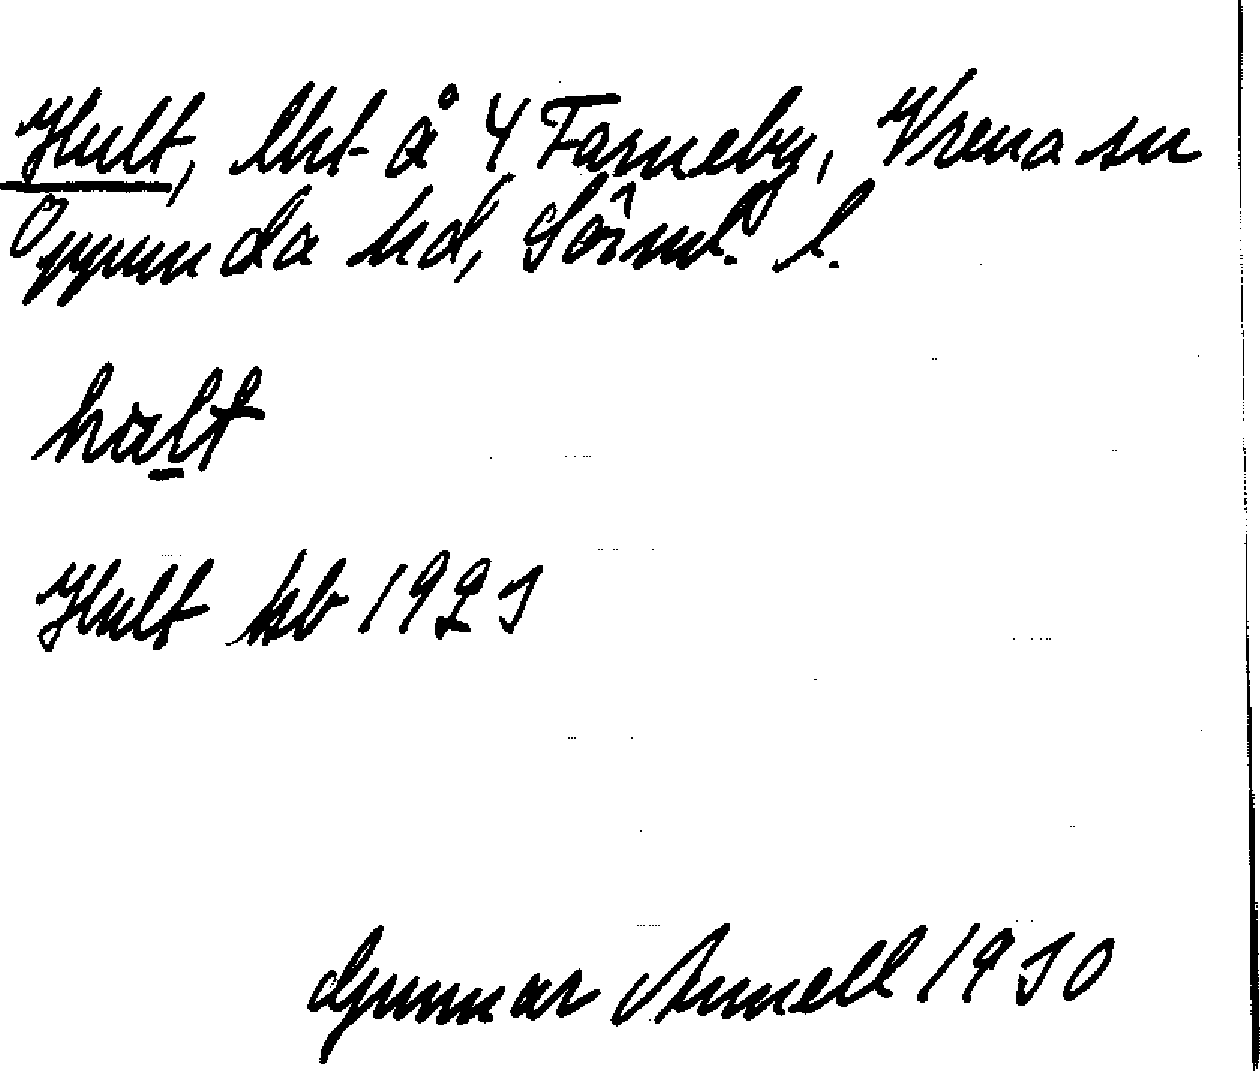 Hult, lht å 4 Farneby, Vrena sn
Oppunda hd, Sörml. l.
halt
Hult kb 1925
Gunnar Arnell 1930